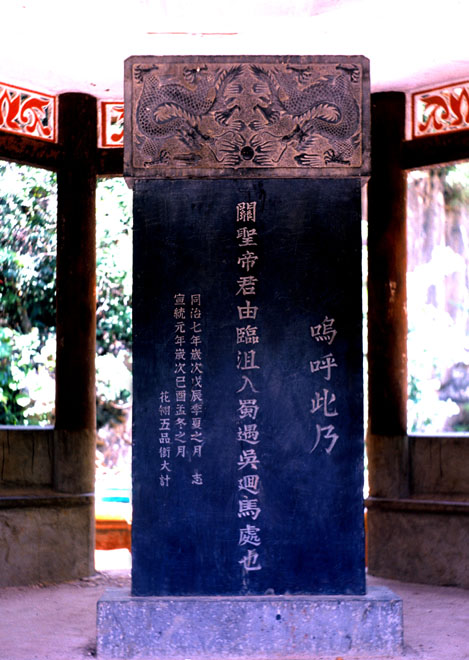 嗚呼此乃
關聖帝君由臨沮入蜀遇吳迴馬處也
同治七年歲次戊辰季夏之月 志
宣統元年歲次己酉孟冬之月
花翎五品銜大計